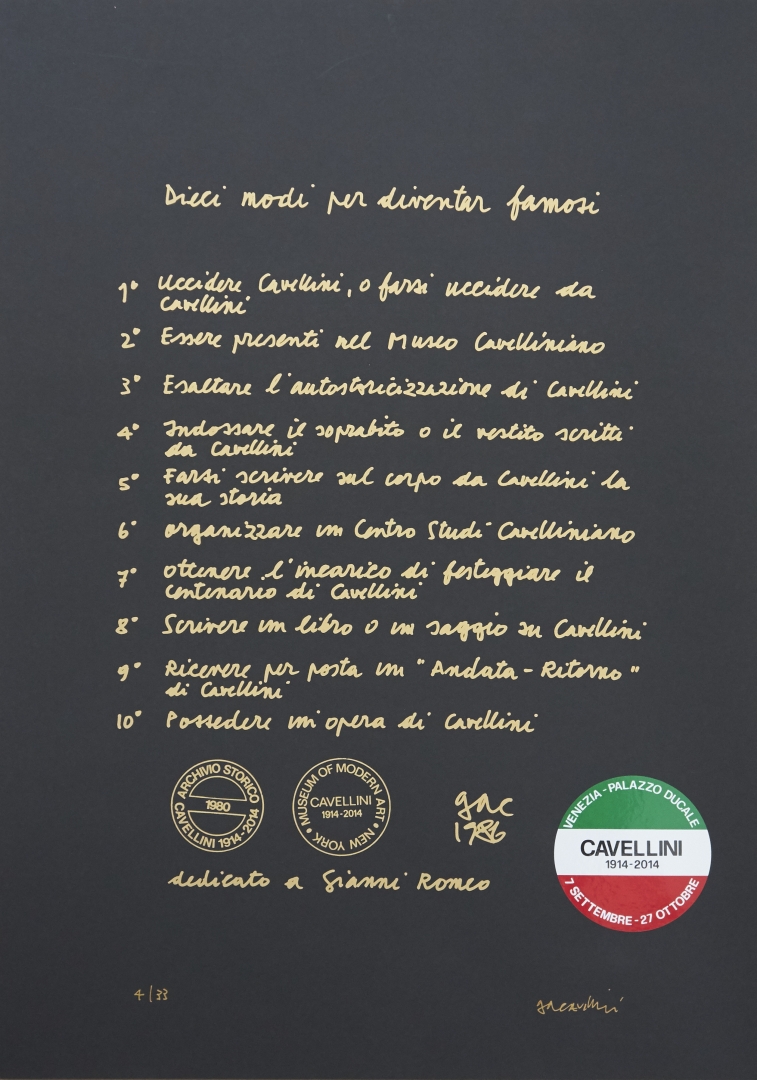 Dieci modi per diventar famosi
1° Uccidere Cavellini, o farsi uccidere da
Cavellini
2° Essere presenti nel Museo Cavelliniano
3° Esaltare l'autostoricizzazione di Cavellini
4° Indossare il soprabito o il vestito scritti
da Cavellini
5° Farsi scrivere sul corpo da Cavellini la
sua storia
6° organizzare un Centro Studi Cavelliniano
7° ottenere l'incarico di festeggiare il
centenario di Cavellini
8° Scrivere un libro o un saggio su Cavellini
9° Ricevere per posta un "Andata-Ritorno"
di Cavellini
10° Possedere un'opera di Cavellini
ARCHIVIO STORICO
1980
CAVELLINI 1914-2014
MUSEUM OF MODERN ART • NEW YORK •
CAVELLINI
1914-2014
gac
1986
VENEZIA - PALAZZO DUCALE
CAVELLINI
1914-2014
7 SETTEMBRE - 27 OTTOBRE
dedicato a Gianni Romeo
4/33
gacavellini